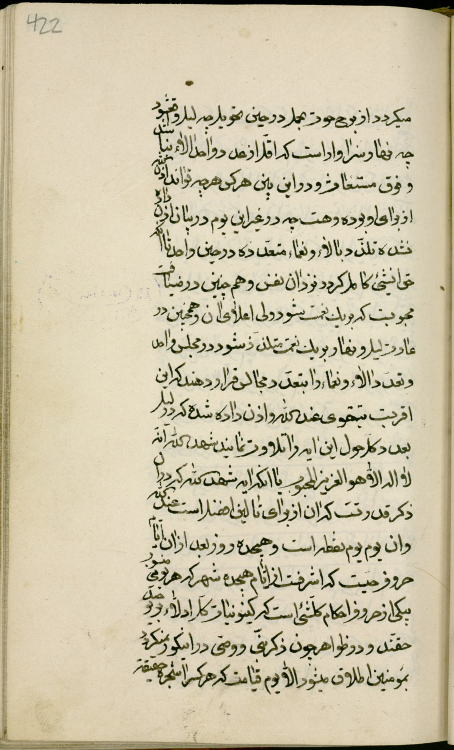 422
میگردد از برج حوت بحمل در حین تحویل چه لیل واقع شود
چه نهار و سزاوار است که اقل از عدد واحد الاء نباشد
و فوق مستغاث و در این بین هر کس هر چه تواند اذن داده
از برای او بوده و هست چه در غیر این یوم در بیان اذن
نشده تلذذ بالاء و نعماء متعدده در حین واحد تا آنکه
حق آن شیئ کامل گردد نزد آن نفس و همچنین در ضیافت
محبوبیت که بر یک نعمت شود ولی اعلای آن و همچنین در
عادت لیل و نهار بر یک نعمت متلذذ شود در مجلس واحد
و تعدد الاء و نعماء را بتعدد مجالس قرار دهند که این
اقربست بتقوی عند الله و اذن داده شده که در لیل
بعدد کل حول این ایه را تلاوت نمایند شهد الله انه
لا اله الا هو العزیز المحبوب یا آنکه ایه شهد الله که در ان
ذکر قدرتست که ان از برای تالین افضل است عند الله
وان یوم یوم نقطه است و هیجده روز بعد از ان ایام
حروف حیست که اشرفست از ایام هیجده شهر که هر یومی منسوب
بیکی از حروف و احکام کلشئ است که کینونیات کل ادلاء بر توحید
حقند و در ظواهر چون ذکر نفی و وصفی در این کور نمیگردد
بمومنین اطلاق میشود الا یوم قیامت که هر کس را شجره حقیقة